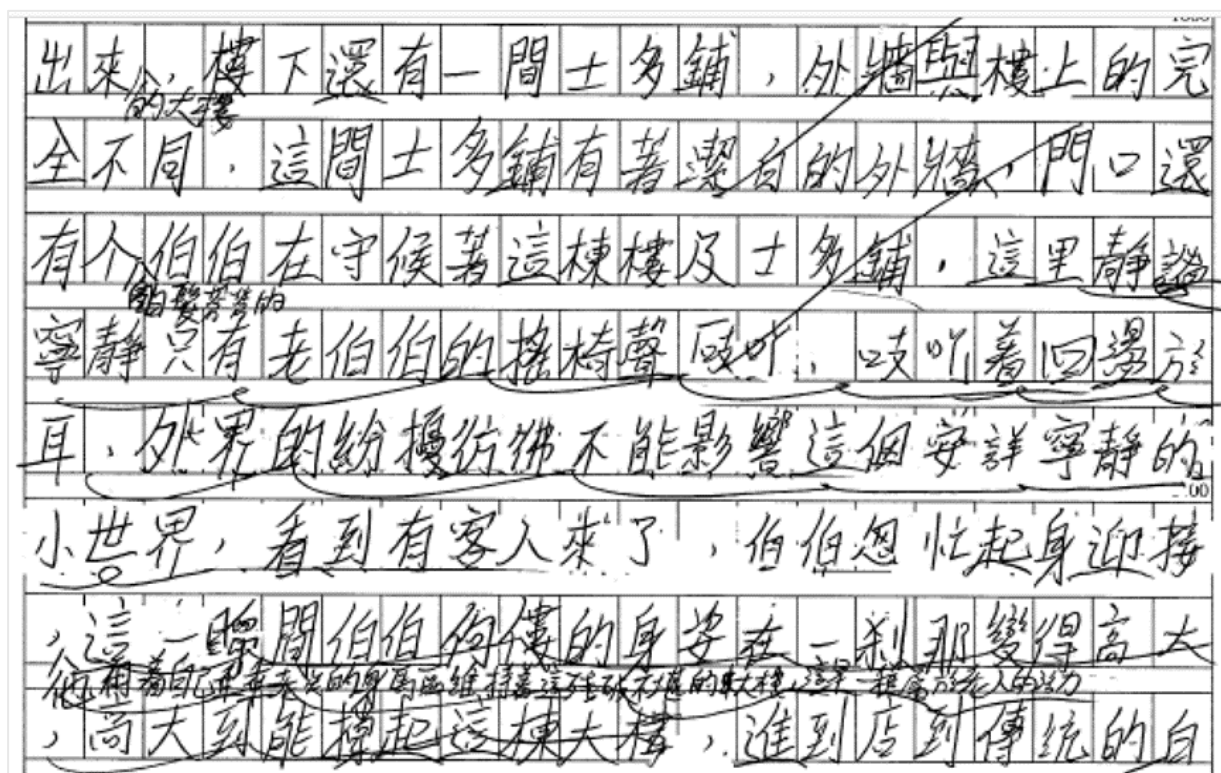 出來,樓下還有一間士多鋪,外牆與樓上的完
的大樓
全不同,這間士多鋪有著潔白的外牆,門口還
有个伯伯在守候著這棟樓及士多鋪。這里靜謐
白髮蒼蒼的
寧靜只有老伯伯的搖椅聲吱吖,吱吖着回盪於
耳,外界的紛擾彷彿不能影響這個安詳寧靜的
小世界,看到有客人來了,伯伯忽忙起身迎接
,這一瞬間伯伯佝僂的身姿在一剎那變得高大
他用着自己
身軀維持著這
的大樓,這是一種屬於老人的活力
,高大到能撐起這棟大樓,進到店到傳統的白